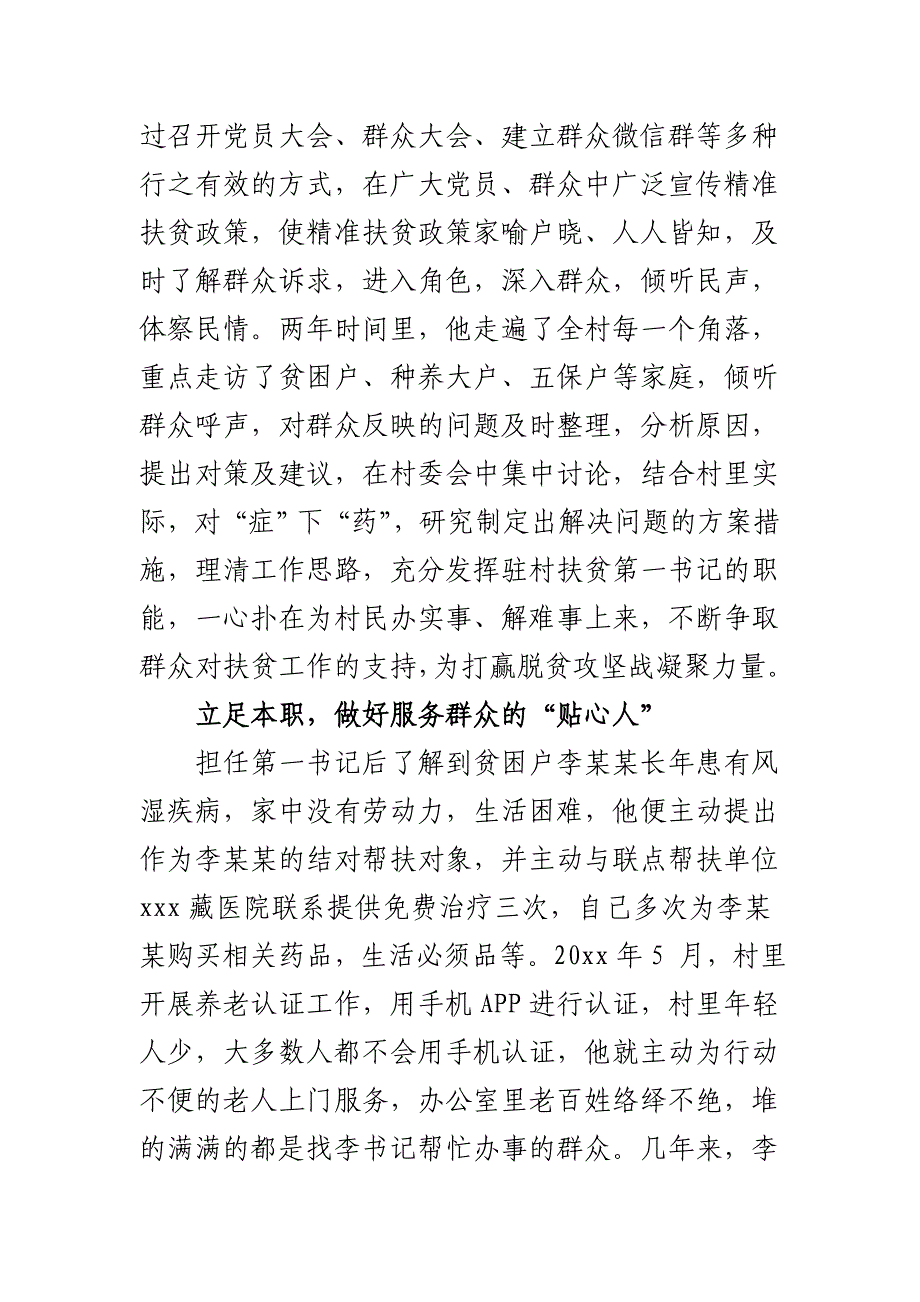 过召开党员大会、群众大会、建立群众微信群等多种
行之有效的方式，在广大党员、群众中广泛宣传精准
扶贫政策，使精准扶贫政策家喻户晓、人人皆知，及
时了解群众诉求，进入角色，深入群众，倾听民声，
体察民情。两年时间里，他走遍了全村每一个角落，
重点走访了贫困户、种养大户、五保户等家庭，倾听
群众呼声，对群众反映的问题及时整理，分析原因，
提出对策及建议，在村委会中集中讨论，结合村里实
际，对“症”下“药”，研究制定出解决问题的方案措
施，理清工作思路，充分发挥驻村扶贫第一书记的职
能，一心扑在为村民办实事、解难事上来，不断争取
群众对扶贫工作的支持，为打赢脱贫攻坚战凝聚力量。
立足本职，做好服务群众的“贴心人”
担任第一书记后了解到贫困户李某某长年患有风
湿疾病，家中没有劳动力，生活困难，他便主动提出
作为李某某的结对帮扶对象，并主动与联点帮扶单位
xxx藏医院联系提供免费治疗三次，自己多次为李某
某购买相关药品，生活必须品等。20xx年5 月，村里
开展养老认证工作，用手机APP进行认证，村里年轻
人少，大多数人都不会用手机认证，他就主动为行动
不便的老人上门服务，办公室里老百姓络绎不绝，堆
的满满的都是找李书记帮忙办事的群众。几年来，李